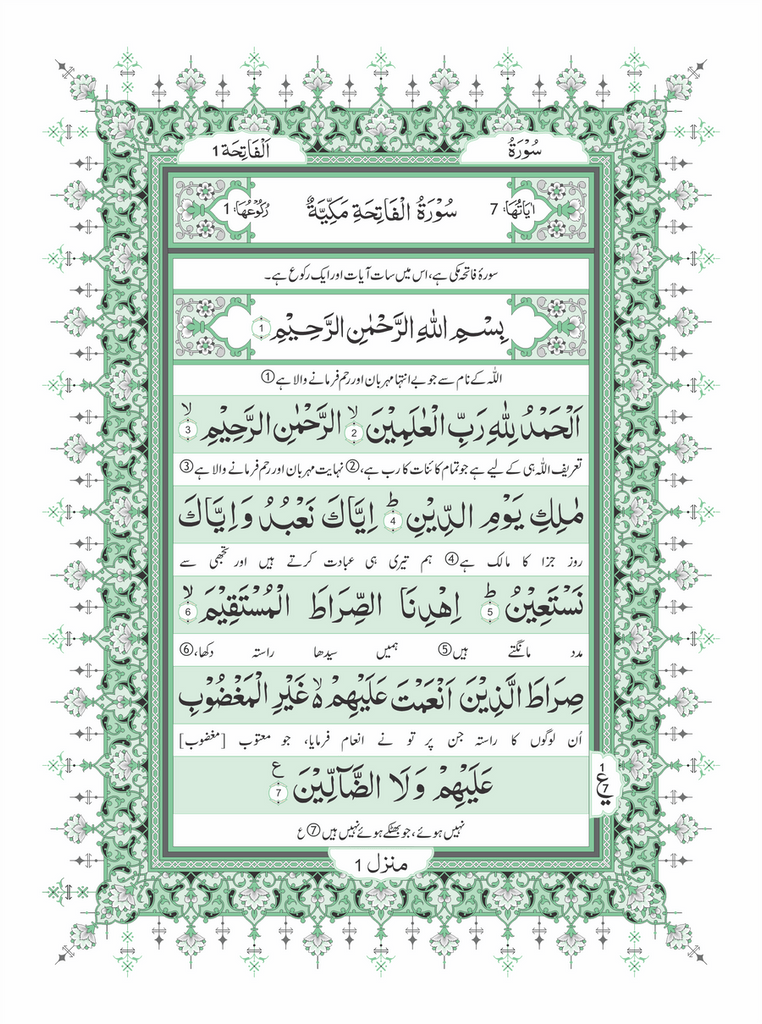 سُوْرَةُ اَلْفَاتِحَة 1
اٰيَاتُهَا: 7 سُوْرَةُ الْفَاتِحَةِ مَكِّيَّةٌ رُكُوْعُهَا: 1
سورۂ فاتحہ مکی ہے، اس میں سات آیات اور ایک رکوع ہے۔
بِسْمِ اللهِ الرَّحْمٰنِ الرَّحِيْمِ 1
اللہ کے نام سے جو بے انتہا مہربان اور رحم فرمانے والا ہے ①
اَلْحَمْدُ لِلّٰهِ رَبِّ الْعٰلَمِيْنَ ۙ 2 الرَّحْمٰنِ الرَّحِيْمِ ۙ 3
تعریف اللہ ہی کے لیے ہے جو تمام کائنات کا رب ہے، ② نہایت مہربان اور رحم فرمانے والا ہے ③
مٰلِكِ يَوْمِ الدِّيْنِ ؕ 4 اِيَّاكَ نَعْبُدُ وَاِيَّاكَ
روز جزا کا مالک ہے ④ ہم تیری ہی عبادت کرتے ہیں اور تجھی سے
نَسْتَعِيْنُ ؕ 5 اِهْدِنَا الصِّرَاطَ الْمُسْتَقِيْمَ ۙ 6
مدد مانگتے ہیں ⑤ ہمیں سیدھا راستہ دکھا، ⑥
صِرَاطَ الَّذِيْنَ اَنْعَمْتَ عَلَيْهِمْ ۙ۬ غَيْرِ الْمَغْضُوْبِ
اُن لوگوں کا راستہ جن پر تو نے انعام فرمایا، جو معتوب [مغضوب]
عَلَيْهِمْ وَلَا الضَّآلِّيْنَ ع 7
1 ع 7
نہیں ہوئے، جو بھٹکے ہوئے نہیں ہیں ⑦ ع
منزل 1